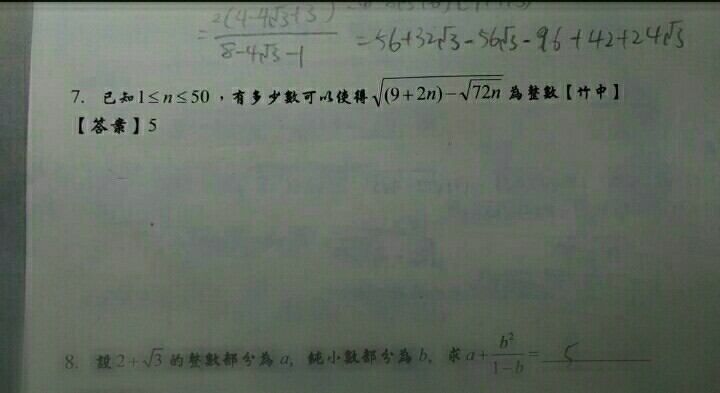 = 2(4-4√3+3) / 8-4√3-1 = 56+32√3-56√3-96+42+24√3
7. 已知1≤n≤50，有多少數可以使得√((9+2n)-√72n) 為整數【竹中】
【答案】5
8. 設2+√3 的整數部分為a，純小數部分為b，求a+b²/1-b= 5